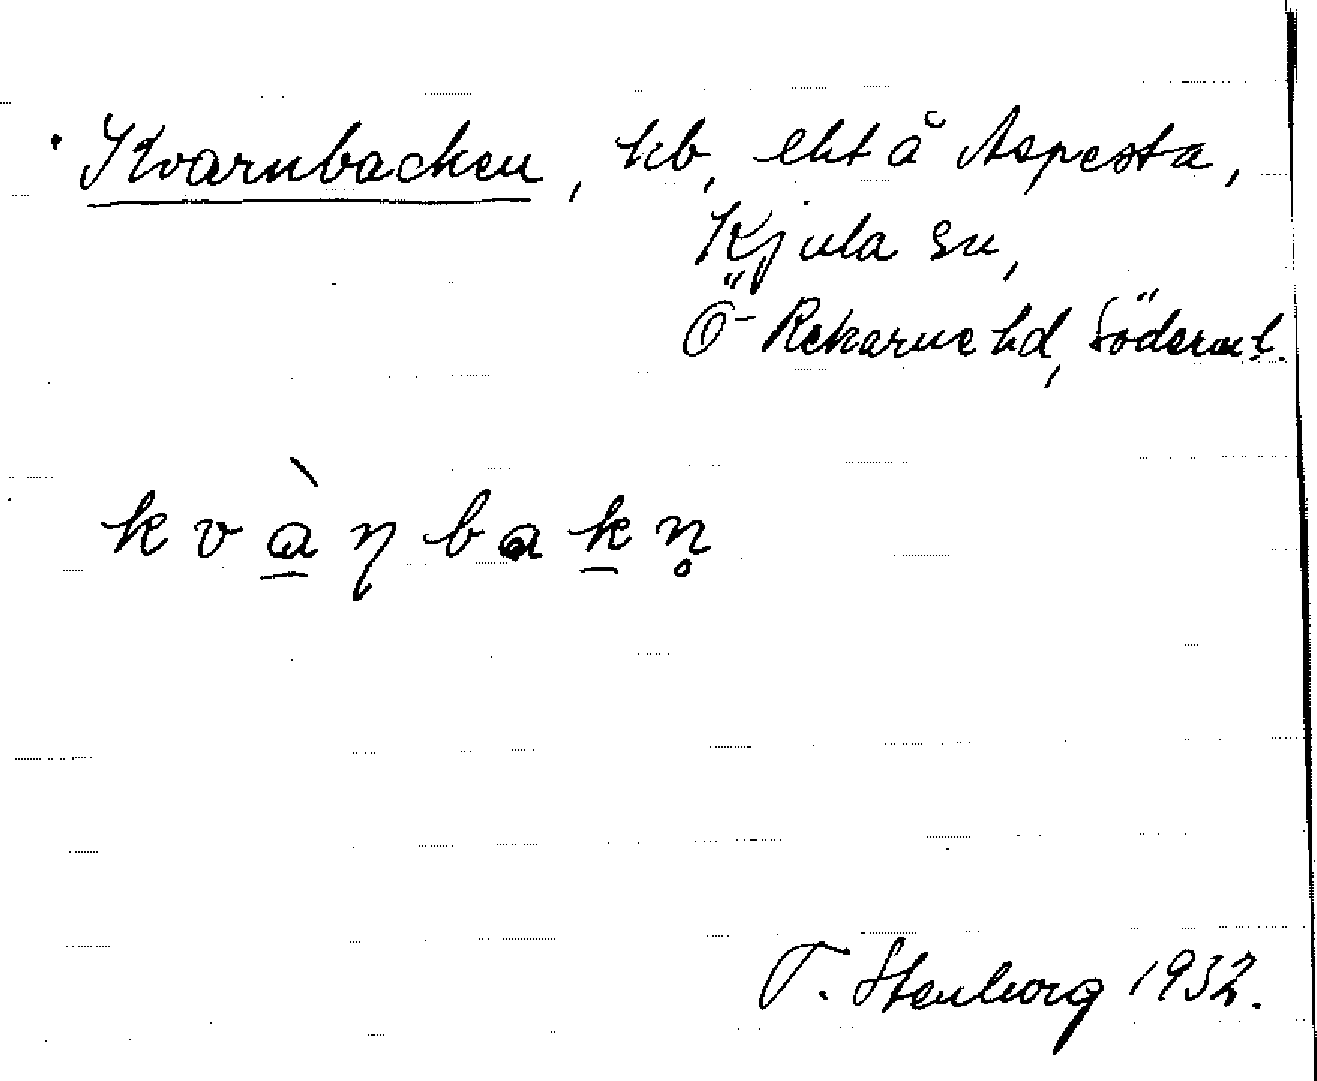 Kvarnbacken, kb, eht å Aspesta,
Kjula sn,
Ö-Rekarne hd, Söderml.
kvàŋbakn̥
T. Stenborg 1932.